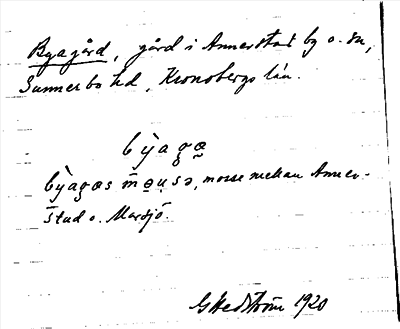 Byagård, gård i Annerstad by o. sn,
Sunnerbo hd, Kronobergs län.
by̆agæ
by̆agæs mo̤u̯sə, mosse mellan Anner-
stad o. Marsjö.
GHedström 1920